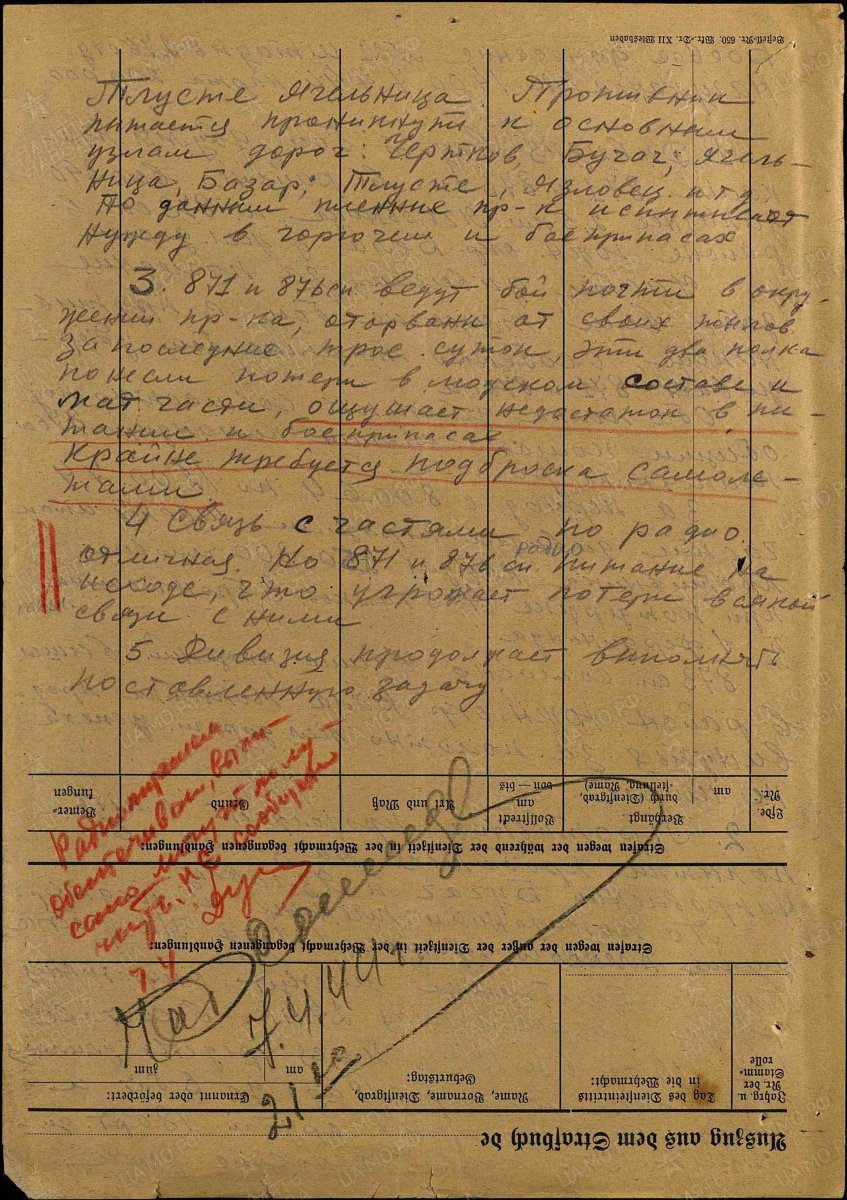 Тлусте Ягельница. Противник
питается проникнути к основним
узлам дорог: Чертков, Бучач, Ягель-
ница, Базар, Тлусте, Язловец и тд
По данним пленние пр-к испитивает
нужду в горючем и боеприпасах
3. 871 и 876 сп ведут бой почти в окру-
жении пр-ка, оторвани от своих тилов
За последние трое суток, эти два полка
понесли потери в людском составе и
мат части, ощущает недостаток в пи-
тании и боеприпасах
Крайне требуется подброска самоле-
тами
4 Связь с частями по радио
отличная. Но 871 и 876 сп радио питание на
исходе, что угрожает потери
связи с ними
5 Дивизия продолжает выполнять
поставленную задачу
Радиопитанием
7.4
7.4.44 г.
Beстell-Nr. 650. Wtr.-Dr. XII Wiesbaden
Auszug aus dem Strafbuch de
Jahrg. u. Nr. der Stamm-rolle
Tag des Diensteintritts in die Wehrmacht:
Name, Vorname, Dienstgrad, Geburtstag:
Ernannt oder befördert:
am
zum
Strafen wegen der außer der in Dienstzeit der Wehrmacht begangenen Handlungen:
Strafen wegen der während der Dienstzeit in der Wehrmacht begangenen Handlungen:
Lfde. Nr.
am
Verhängt durch (Dienstgrad, -stellung, Name)
Vollstreckt am von — bis
Art und Maß
Grund
Bemer-kungen